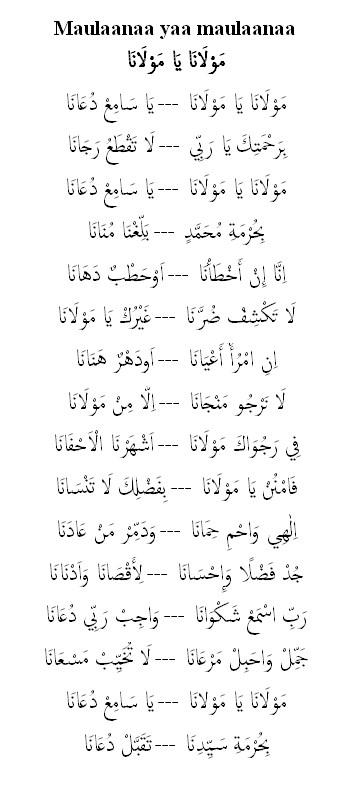 Maulaanaa yaa maulaanaa
مَوْلَانَا يَا مَوْلَانَا
مَوْلَانَا يَا مَوْلَانَا --- يَا سَامِعْ دُعَانَا
بِرَحْمَتِكَ يَا رَبِّي --- لَا تَقْطَعْ رَجَانَا
مَوْلَانَا يَا مَوْلَانَا --- يَا سَامِعْ دُعَانَا
بِحُرْمَةِ مُحَمَّدٍ --- بَلِّغْنَا مُنَانَا
اِنَّا إِنْ أَخْطَأْنَا --- اَوْحَطْبٌ دَهَانَا
لَا تَكْشِفْ ضُرَّنَا --- غَيْرُكْ يَا مَوْلَانَا
اِنِ امْرُأْ أَعْيَانَا --- اَودَهْرٌ هَنَانَا
لَا نَرْجُو مَنْجَانَا --- اِلَّا مِنْ مَوْلَانَا
فِي رَجْوَاكَ مَوْلَانَا --- اَسْهَرْنَا الْاَجْفَانَا
فَامْنُنْ يَا مَوْلَانَا --- بِفَضْلِكَ لَا تَنْسَانَا
اِلٰهِي وَاحْمِ حِمَانَا --- وَدَمِّرْ مَنْ عَادَنَا
جُدْ فَضْلًا وَإِحْسَانَا --- لِأَقْصَانَا وَاَدْنَانَا
رَبِّ اسْمَعْ شَكْوَانَا --- وَاجِبْ رَبِّي دُعَانَا
جَمِّلْ وَاحَبِلْ مَرْعَانَا --- لَا تُخَيِّبْ مَسْعَانَا
مَوْلَانَا يَا مَوْلَانَا --- يَا سَامِعْ دُعَانَا
بِحُرْمَةِ سَيِّدِنَا --- تَقَبَّلْ دُعَانَا